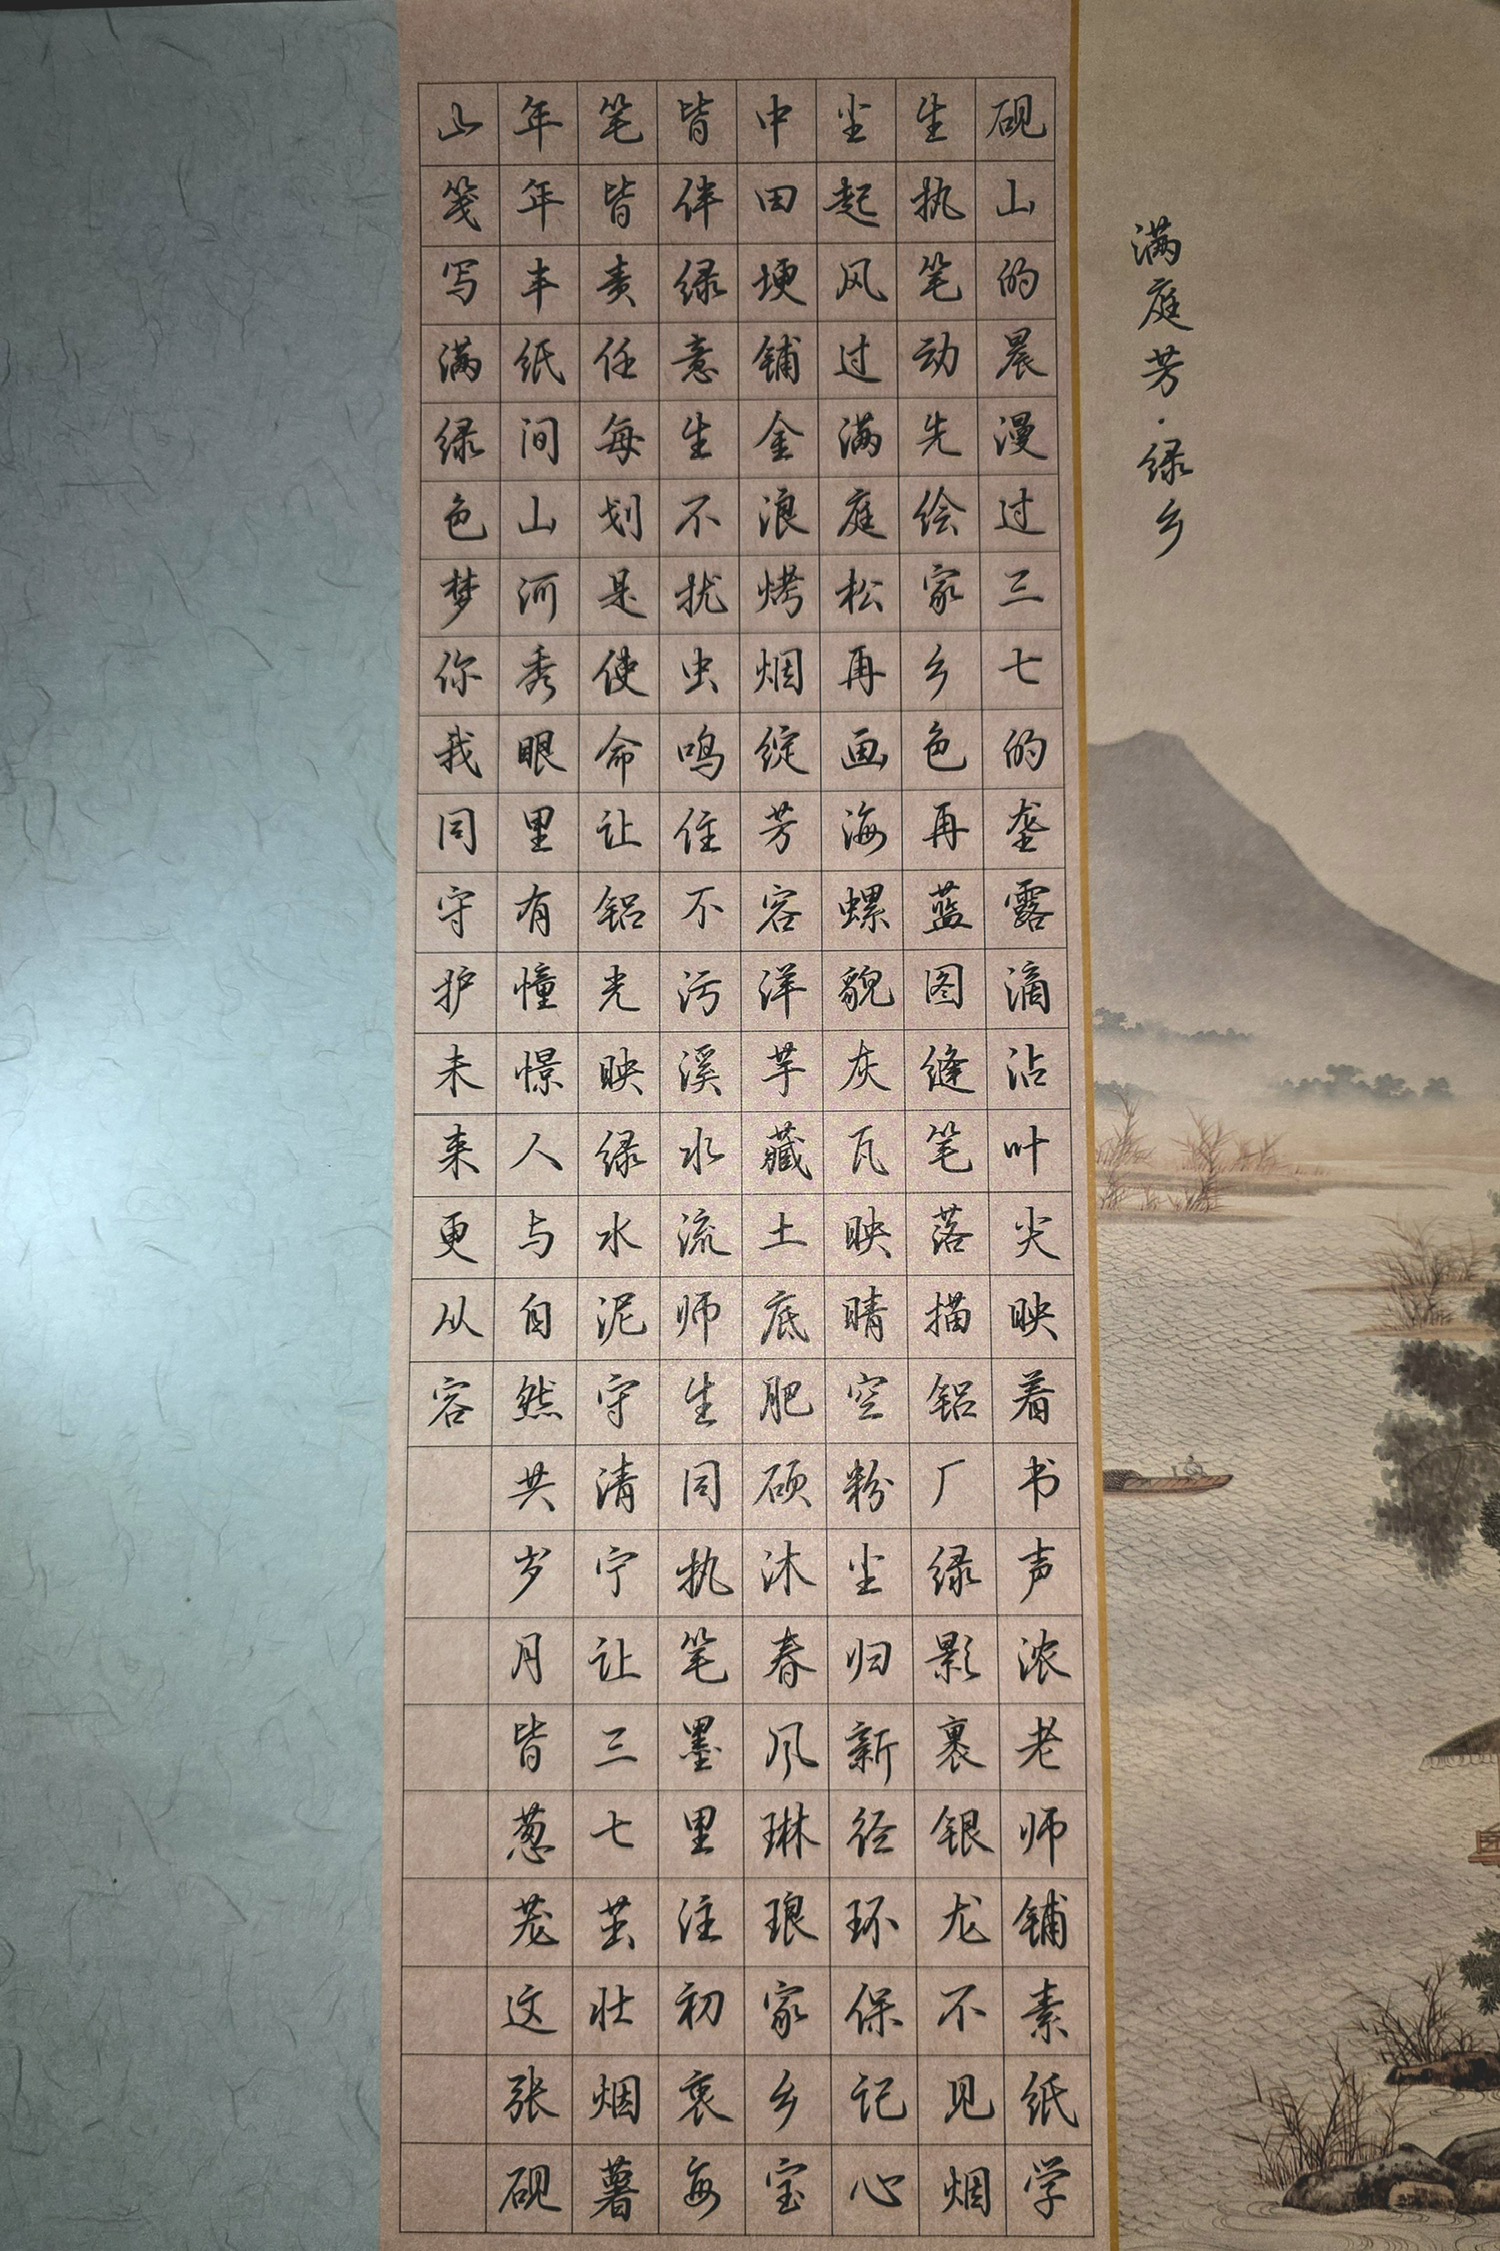 满庭芳·绿乡
砚山的晨漫过三七的垄露滴沾叶尖映着书声浓老师铺素纸学
生执笔动先绘家乡色再蓝图缝笔落描铝厂绿影裹银龙不见烟
尘起风过满庭松再画海螺貌灰瓦映晴空粉尘归新径环保记心
中田埂铺金浪烤烟绽芳容洋芋藏土底肥硕沐春风琳琅家乡宝
皆伴绿意生不扰虫鸣住不污溪水流师生同执笔墨里注初衷每
笔皆责任每划是使命让铝光映绿水泥守清宁让三七茁壮烟薯
年年丰纸间山河秀眼里有憧憬人与自然共岁月皆葱茏这张砚
山笺写满绿色梦你我同守护未来更从容